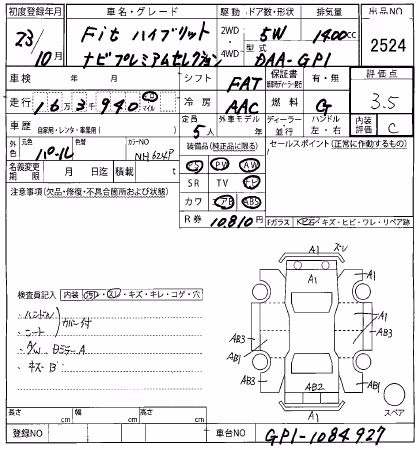 初度登録年月 車名・グレード 駆動 ドア数・形状 排気量 出品NO
23/10月 Fit ハイブリット 2WD 5W 1400cc 2524
ナビプレミアムセレクション 4WD 型式 DAA-GP1
車検 年 月 シフト FAT 保証書 有・無 評価点
走行 16万3千940 km マイル 冷房 AAC 燃料 G 3.5
車歴 自家用・レンタ・事業用( ) 定員 5人 外車モデル 年 ディーラー 並行 ハンドル 左・右 内装評価 C
外色 元色 パール 色替 カラーNO NH624P 装備品(純正品に限る) セールスポイント(正常に動作するもの)
名義変更期限 月 日迄 積載 t PS PW AW
SR TV ナビ
注意事項(欠品・修復・不具合箇所および状態) カワ エアB ABS
R券 10,810円 Fガラス 飛石・キズ・ヒビ・ワレ・リペア跡
A1 ズレ
A1 A1
検査員記入 内装 汚・スレ・キズ・キレ・コゲ・穴
・ハンドル
・シート カバー付
A1
AB3 AB3
・A/W 4ミラー A AB1 AB1
・キズ B
AB3 AB3
AB2
A1
スペア
長さ cm 幅 cm 高さ cm
登録NO 車台NO GP1-1084927